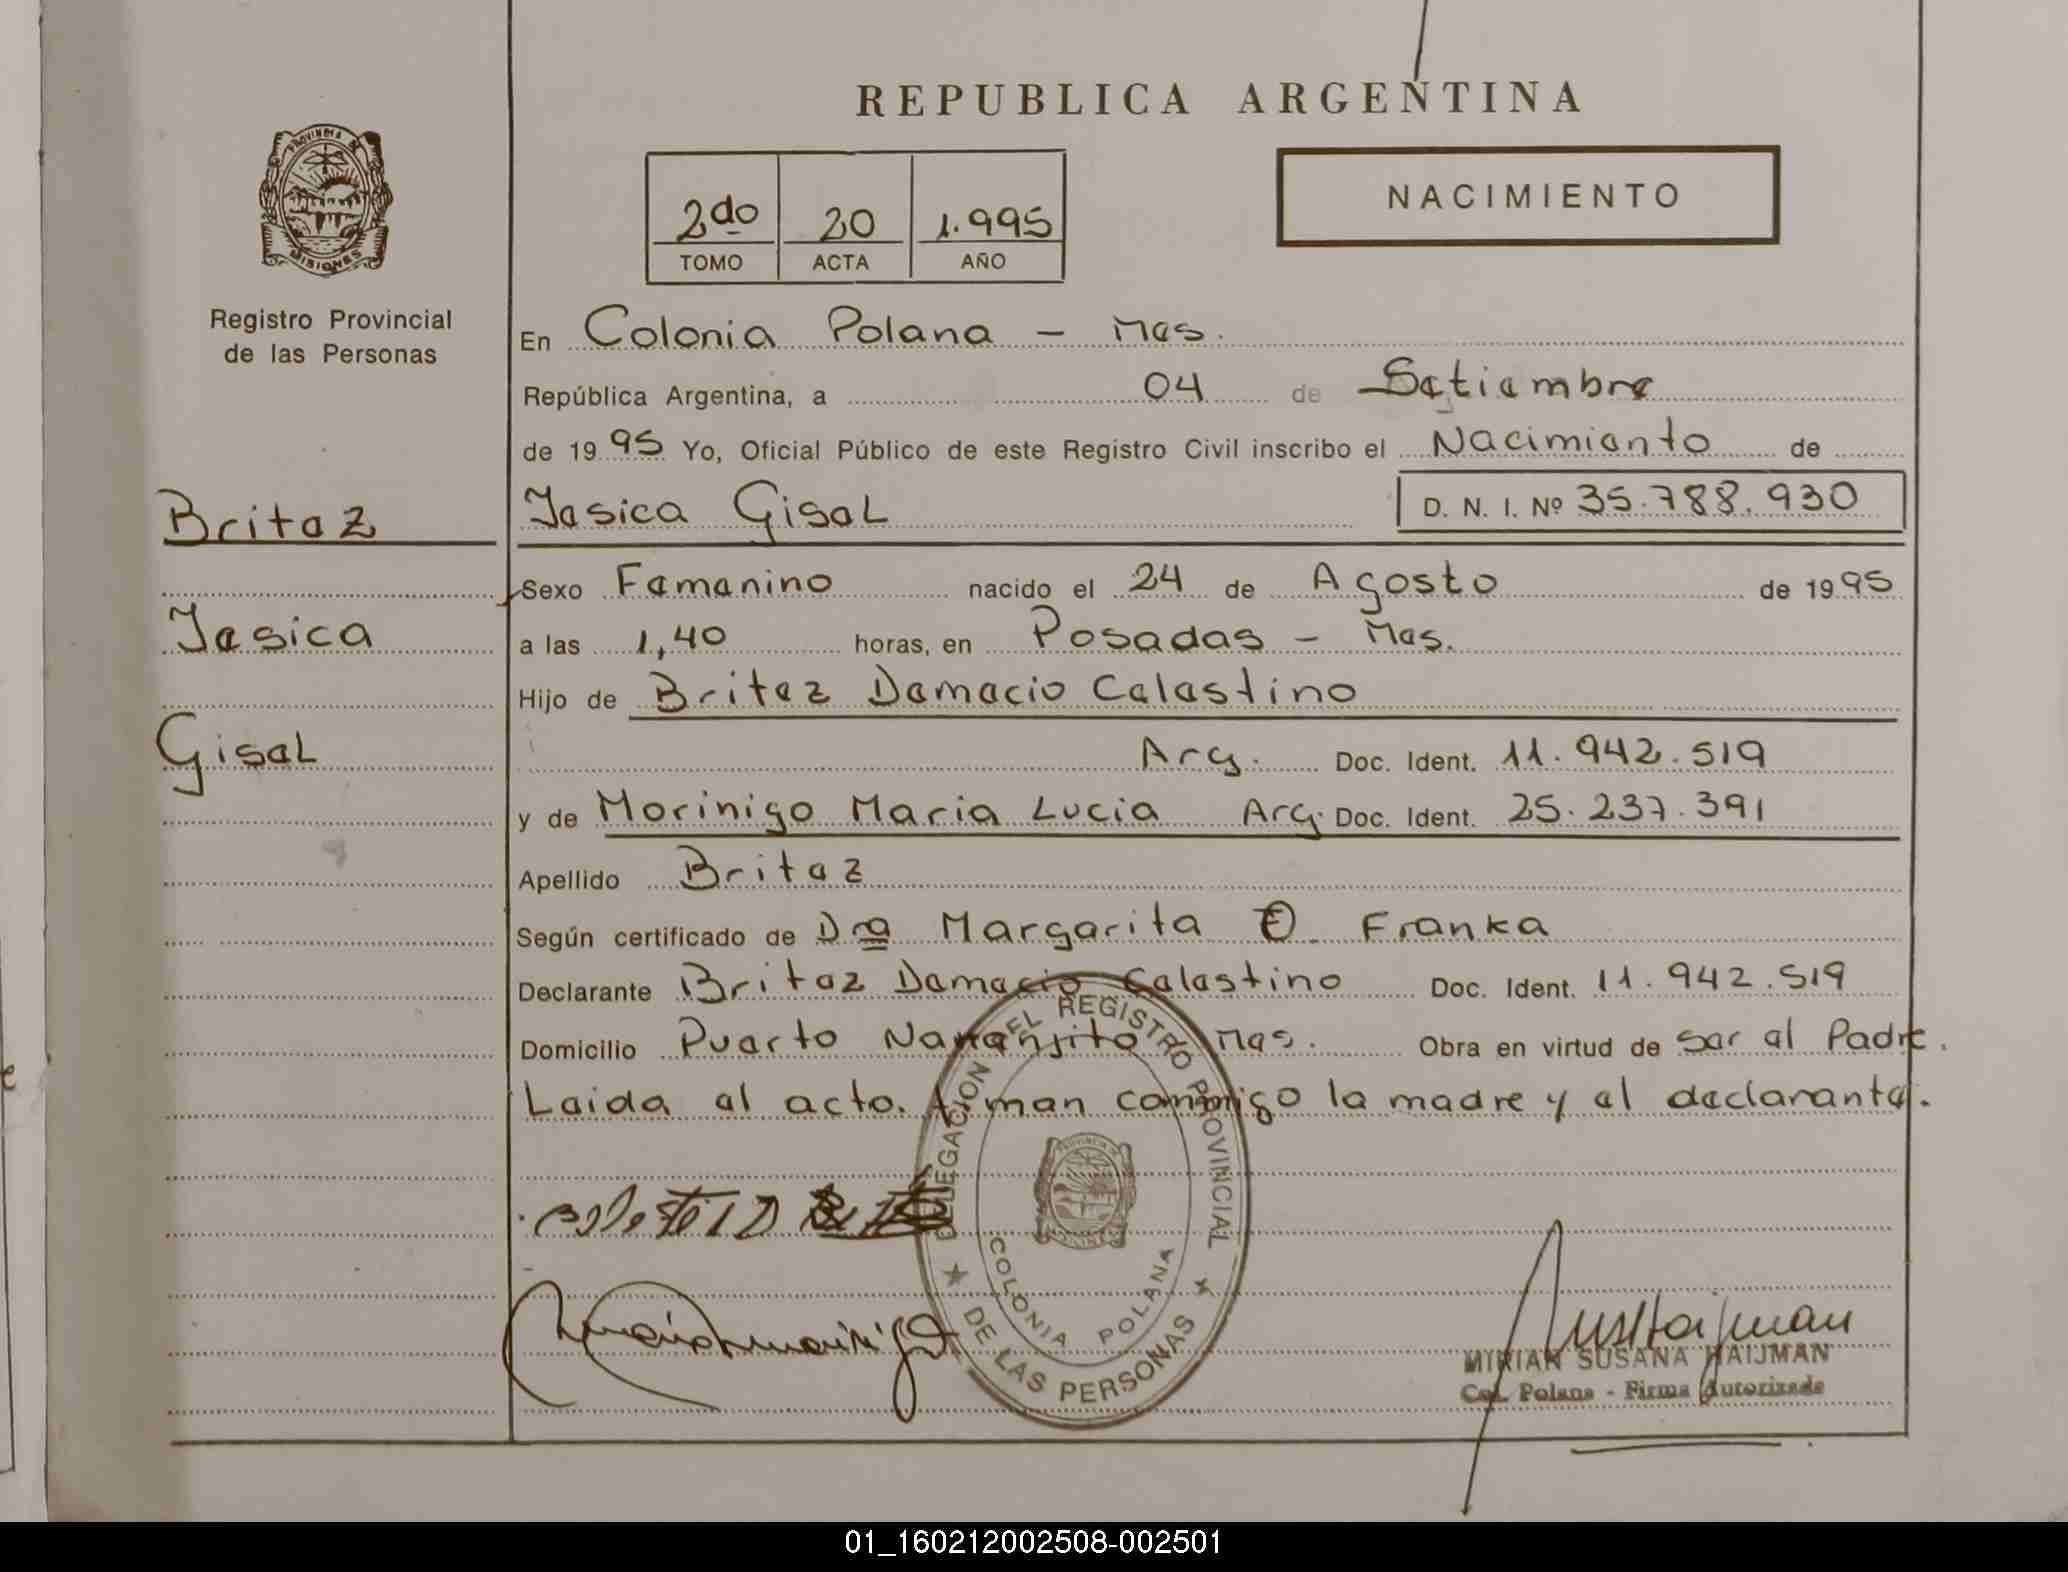 REPUBLICA ARGENTINA
PROVINCIA DE
MISIONES
Registro Provincial
de las Personas
2do 20 1.995
TOMO ACTA AÑO
NACIMIENTO
En Colonia Polana - Mns.
República Argentina, a 04 de Setiembre
de 1995 Yo, Oficial Público de este Registro Civil inscribo el Nacimiento de
Britez
Jesica Gisel D. N. I. Nº 35.788.930
Sexo Femenino nacido el 24 de Agosto de 1995
Jesica
a las 1,40 horas, en Posadas - Mns.
Hijo de Britez Damacio Celestino
Gisel
Arg. Doc. Ident. 11.942.519
y de Morinigo Maria Lucia Arg. Doc. Ident. 25.237.391
Apellido Britez
Según certificado de Dra Margarita O Franke
Declarante Britez Damacio Celestino Doc. Ident. 11.942.519
Domicilio Puerto Naranjito Mns. Obra en virtud de ser el Padre.
Leida el acto. firman conmigo la madre y el declarante.
DELEGACION DEL REGISTRO PROVINCIAL
DE LAS PERSONAS
COLONIA POLANA
MIRIAN SUSANA HAIJMAN
Col. Polana - Firma Autorizada
01_160212002508-002501